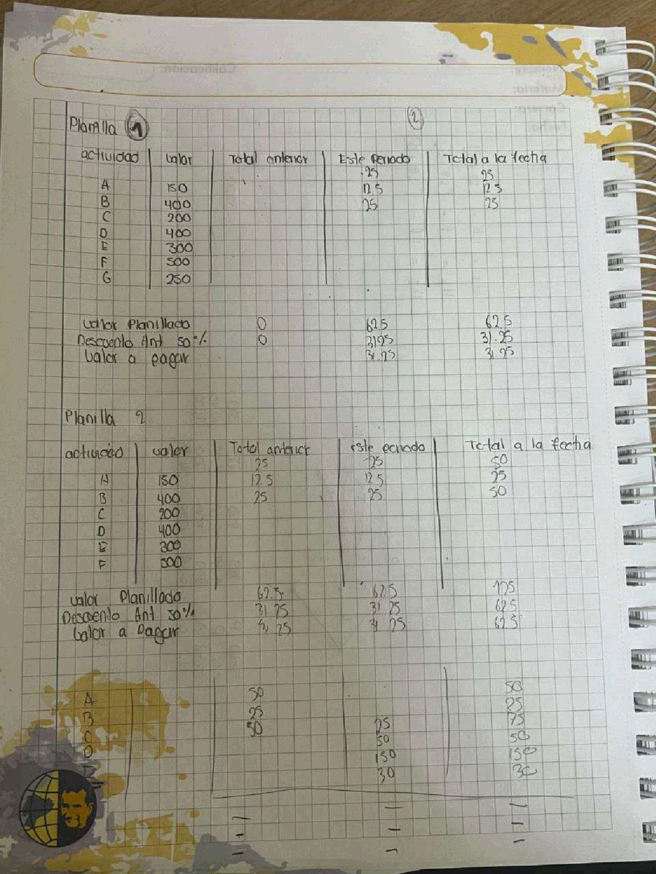 Planilla 1
2
actividad valor Total anterior Este Periodo Total a la fecha
25 25
A 150 12.5 12.5
B 400 25 25
C 200
D 400
E 300
F 500
G 250
Valor Planillado 0 62.5 62.5
Descuento Ant 50% 0 31.25 31.25
Valor a pagar 31.25 31.25
Planilla 2
actividad valor Total anterior este periodo Total a la fecha
25 25 50
A 150 12.5 12.5 25
B 400 25 25 50
C 200
D 400
E 300
F 300
Valor Planillado 62.5 62.5 125
Descuento Ant 50% 31.25 31.25 62.5
Valor a Pagar 31.25 31.25 62.5
A 50 50
B 25 25
C 50 25 75
D 50 50
150 150
30 30